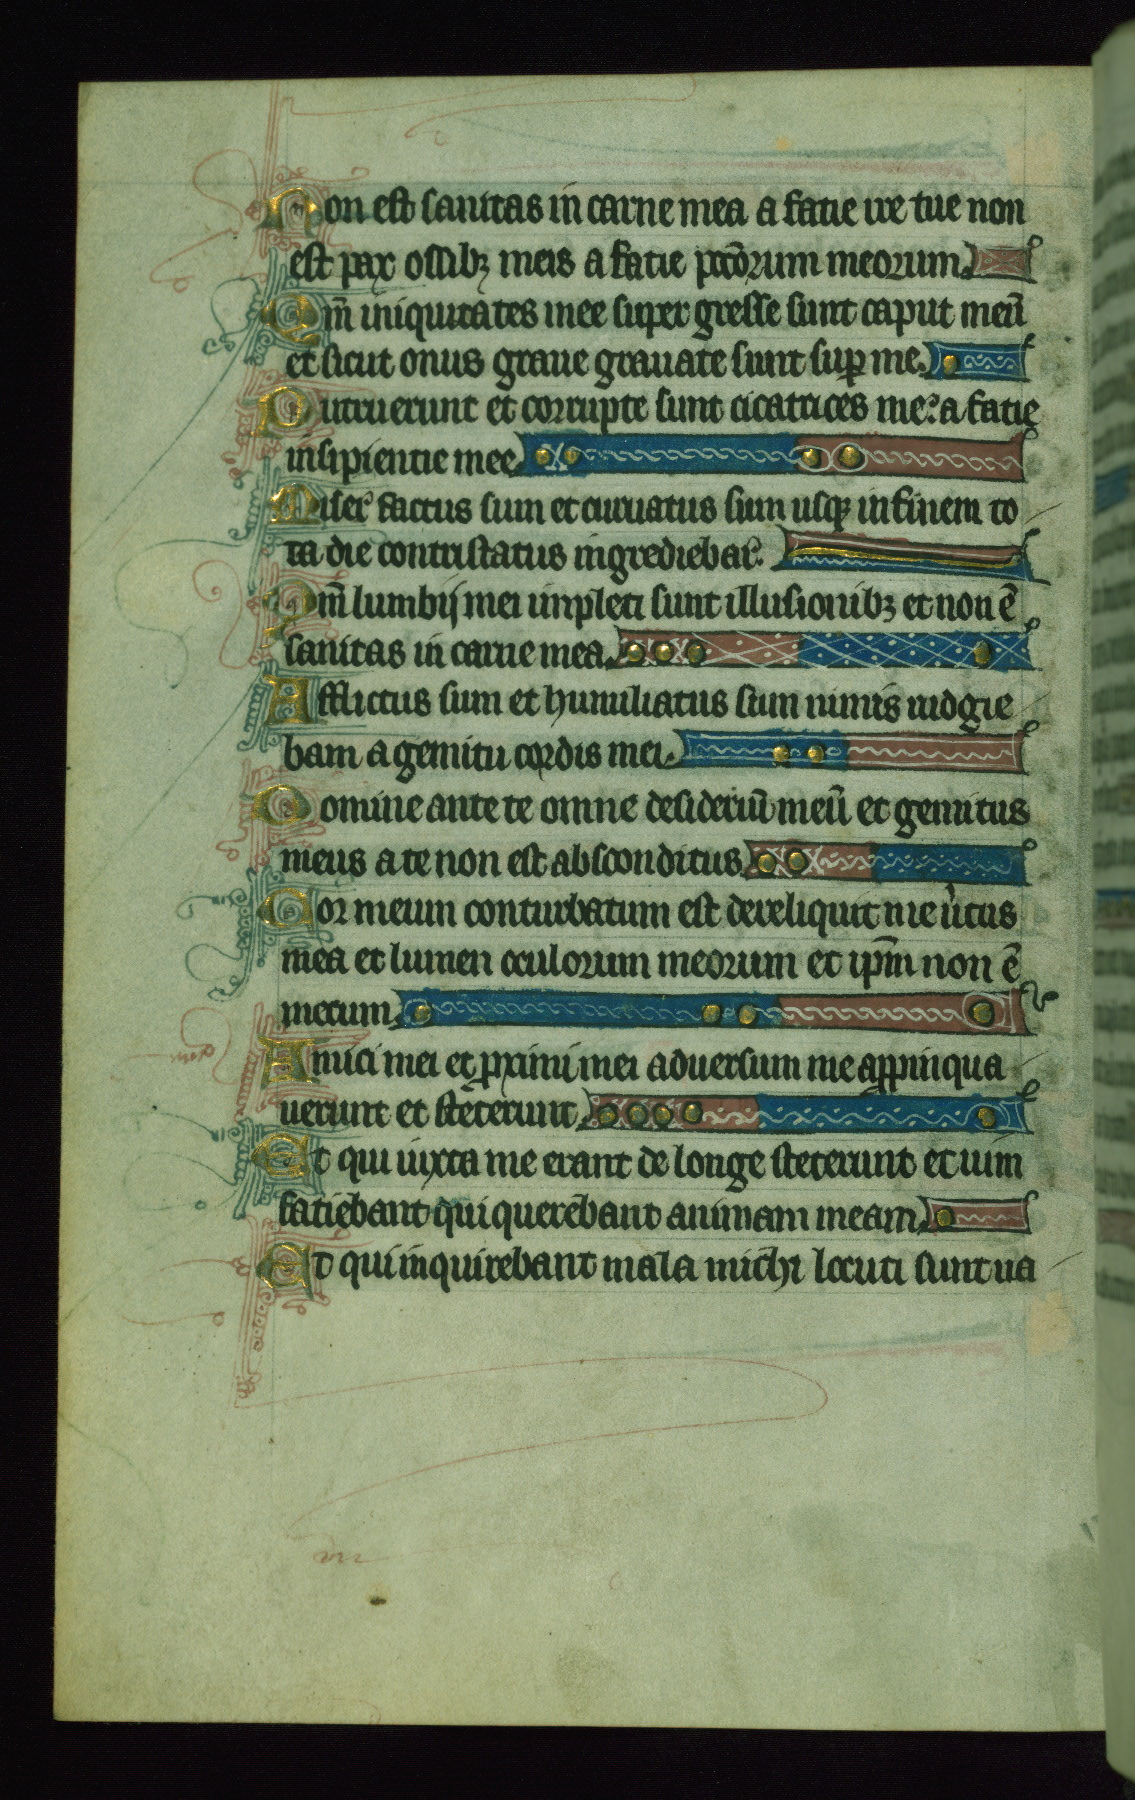 Non est sanitas in carne mea a fatie ire tue non
est pax ossibꝫ meis a fatie pccōrum meorum.
Qm̄ iniquitates mee super gresse sunt caput meū
et sicut onus graue grauate sunt suꝑ me.
Putruerunt et corrupte sunt cicatrices meˀ a fatie
insipientie mee.
Miserˀ factus sum et curuatus sum usqꝫ in finem to
ta die contristatus ingrediebarˀ.
Qm̄ lumbij mei impleti sunt illusionibꝫ et non ē
sanitas in carne mea.
Afflictus sum et humiliatus sum nimis
bam a gemitu cordis mei.
Domine ante te omne desideriū meū et gemitus
meus a te non est absconditus.
Cor meum conturbatum est dereliquit me uͥtus
mea et lumen oculorum meorum et ip̄m non ē
mecum.
Amici mei et ꝓximi mei aduersum me aꝓpinqua
uerunt et steterunt.
Et qui iuxta me erant de longe steterunt et uim
fatiebant qui querebant animam meam.
Et qui inquirebant mala michi locuti sunt ua